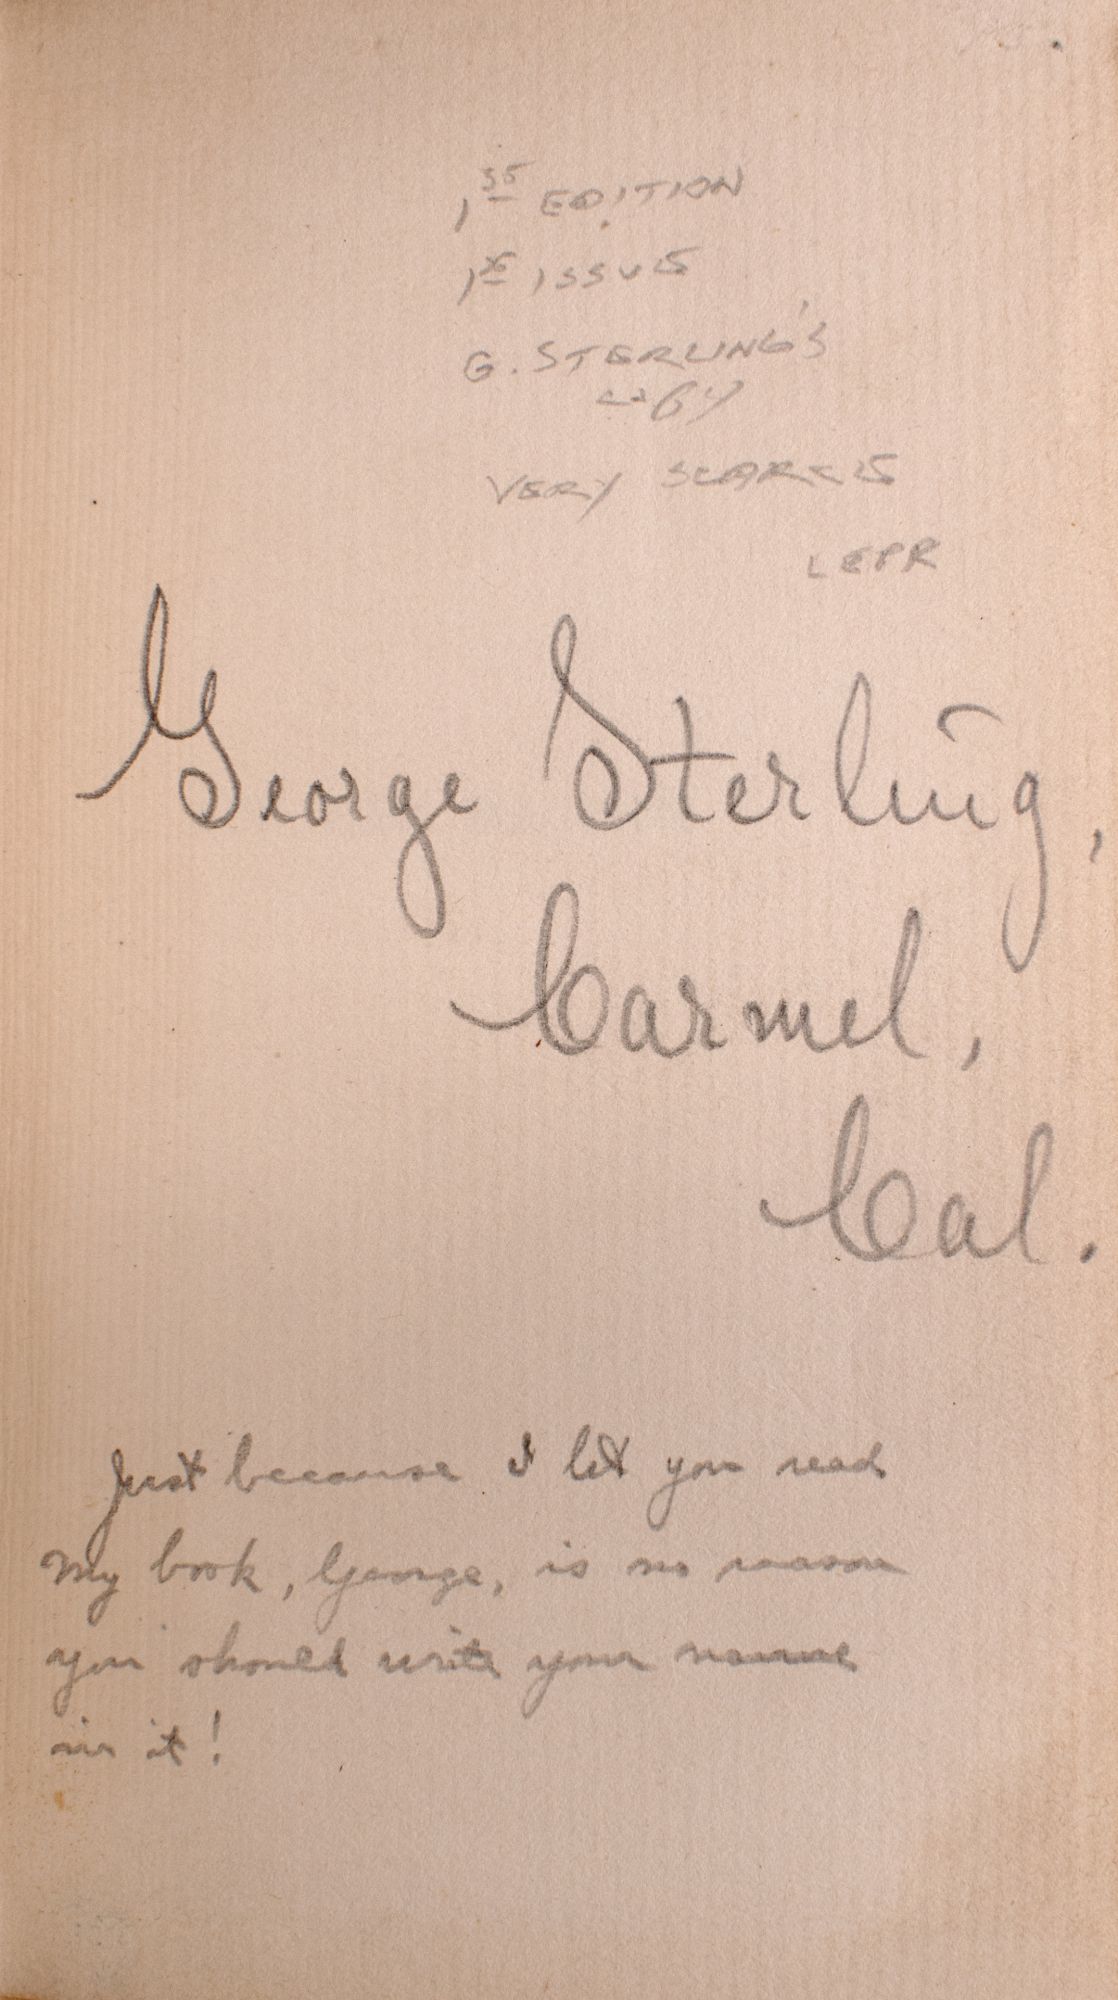 1st EDITION
1st ISSUE
G. STERLING'S
COPY
VERY SCARCE
LEPR
George Sterling,
Carmel,
Cal.
Just because I let you read
my book, George, is no reason
you should write your name
in it!